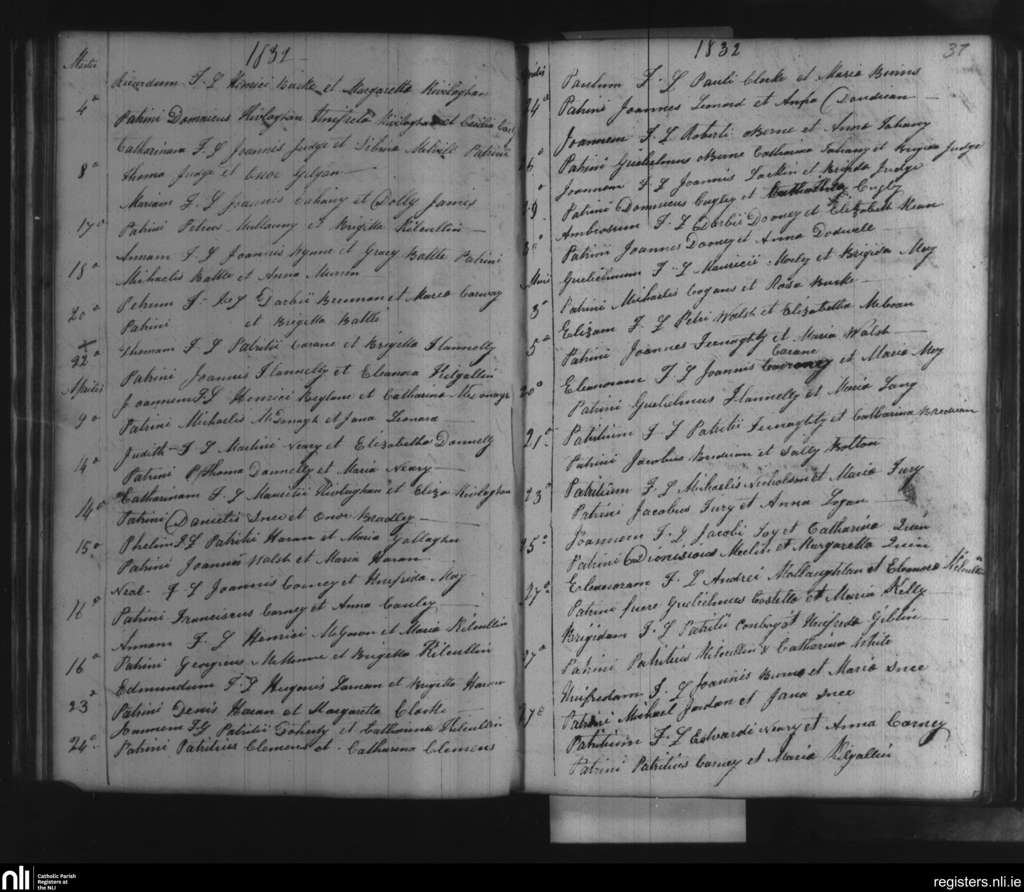 1832
Martii
Ricardum F. L Henrici Burke et Margaretta Kivilaghan
4° Patrini Dominicus Kivlaghan Unifreta Kivlaghan et Cecilia
Catharinam F. L Joannis Judge et Sibina Melvill Patrini
8° Thoma Judge et Onor Gilgan
Mariam F. L Joannis Cahany et Dolly James
17° Patrini Petrus Mullanny et Brigitta Kilcullin
Annam F. L Joannis Wynne et Gracy Battle Patrini
18° Michaelis Battle et Anna
Petrum F. L Darbii Brennan et Maria Conway
20° Patrini et Brigitta Battle
Thomam F L Patritii Carane et Brigitta Flannelly
22° Patrini Joannis Flannelly et Eleanora Kilgallin
Aprilis Joannem F L Henrici Leylans et Catharina
9° Patrini Michaelis McDonagh et Jana Lenard
Judith F L Martini Neary et Elizabetha Donnelly
14° Patrini Thoma Donnelly et Maria Neary
Catharinam F. L Mauritii Kivlaghan et Eliza Kivlaghan
14° Patrini Danielis Snee et Onor Bradley
Phelim F L Patritii Haran et Maria Gallagher
15° Patrini Joannis Walsh et Maria Haran
Neal F L Joannis Conney et Unifrida May
16° Patrini Franciscus Carney et Anna Cauley
Annam F. L Henrici McGowan et Maria Kilcullin
16° Patrini Georgius McKenna et Brigitta Kilcullin
Edmundum F. L Hugonis Larnan et Brigitta Haran
23° Patrini Denis Haran et Margaretta Clarke
Joannem F L Patritii Doherty et Catharina Kilcullin
24° Patrini Patritius Clemens et Catharina Clemens
1832
37
Paulum F. L Pauli Clarke et Maria Binns
24° Patrini Joannes Lenard et Anna
Joannem F. L Roberti Oberne et Anna Tahany
26° Patrini Guelielmus Oberne Catharina Tahany et Brigida Judge
Joannem F. L Joannis Larkin et Brigida Judge
29 Patrini Dominicus Cugley et Cugly
Ambrosum F. L Darbii Dooney et Elizabeth Kean
30° Patrini Joannes Dooney et Anna Dodwell
Maii Guelielmum F. L Mauricii Morly et Brigida May
3° Patrini Michaelis Cogans et Rosa Burke
Elizam F. L Petri Walsh et Elizabetha
5° Patrini Joannes Fenaghty et Maria Walsh
Carane
Eleanoram F. L Joannis et Maria May
20° Patrini Guelielmus Flannelly et Maria Lang
Patritium F L Patritii Fenaghty et Catharina
21° Patrini Jacobus et Sally Bolton
Patritium F. L Michaelis Nicholson et Maria Fury
23° Patrini Jacobus Fury et Anna Logan
Joannem F. L Jacobi Loy et Catharina Quin
25° Patrini Dionisious Meelin et Margaretta Quin
Eleanoram F. L Andrei Mollaughlan et Eleanora Kilcullin
27° Patrini fuere Guelielmus Costello et Maria Kelly
Brigidam F. L Patritii Conboy et Unifrida Giblin
27° Patrini Patritius Kilcullin & Catharina White
Unifridam F. L Joannis Burns et Maria Snee
27° Patrini Michael Jordan et Jana Snee
Patritium F L Edvardi Neary et Anna Carney
Patrini Patritius Carney et Maria Kilgallin
nli Catholic Parish
Registers at
the NLI
registers.nli.ie